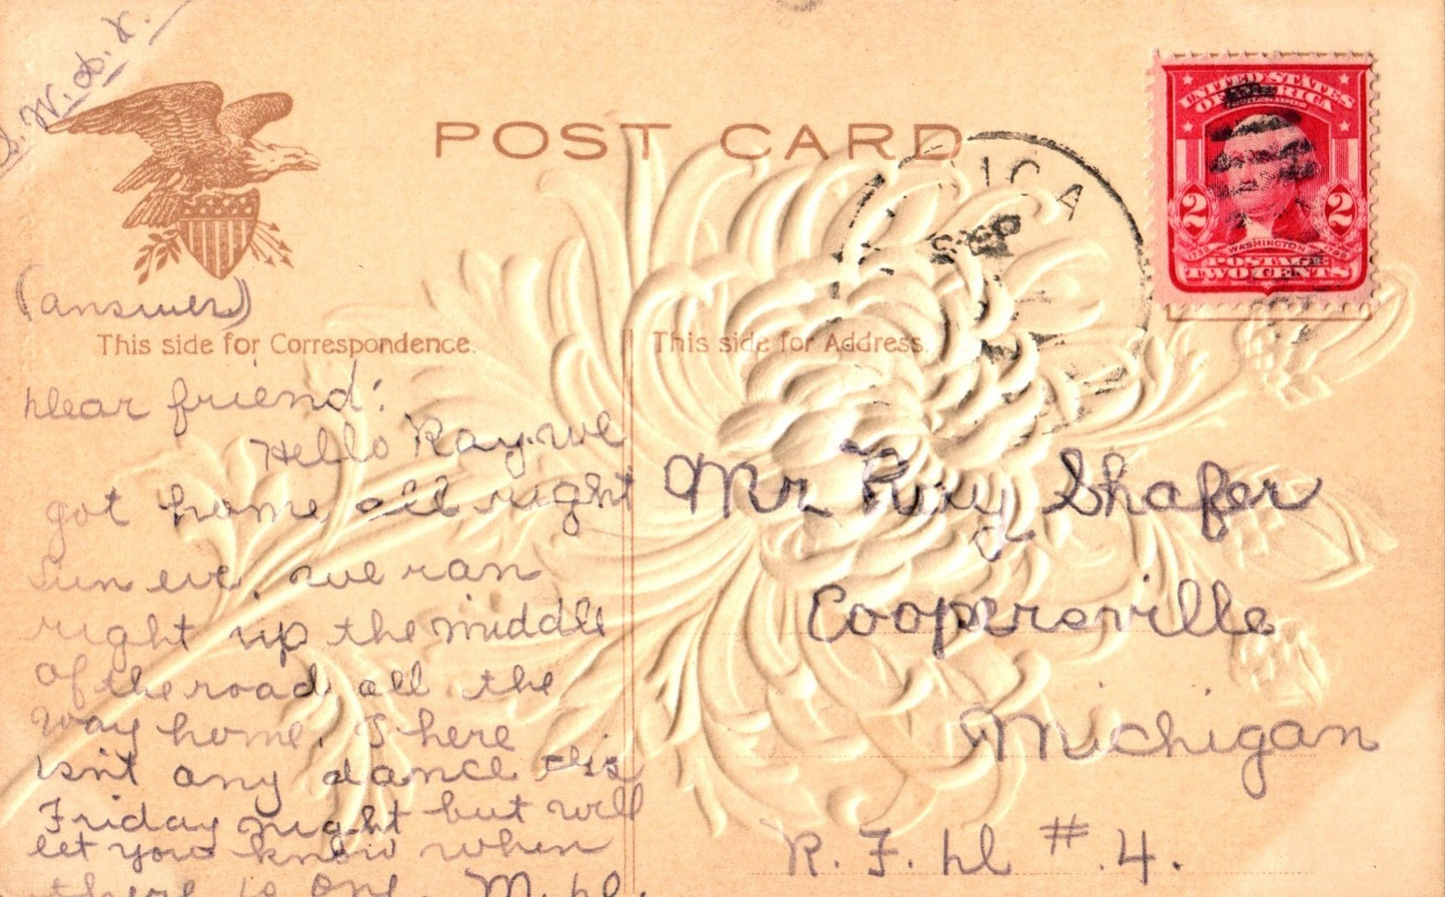 POST CARD
UNITED STATES
OF AMERICA
2 2
WASHINGTON
POSTAGE
TWO CENTS
(answer)
This side for Correspondence.
This side for Address.
Dear friend:
Hello Ray. we
got home all right
Sun eve, we ran
right up the middle
of the road all the
way home. There
isnt any dance this
Friday night but will
let you know when
there is one. M. D.
Mr Ray Shafer
Coopersville
Michigan
R. F. D #.4.